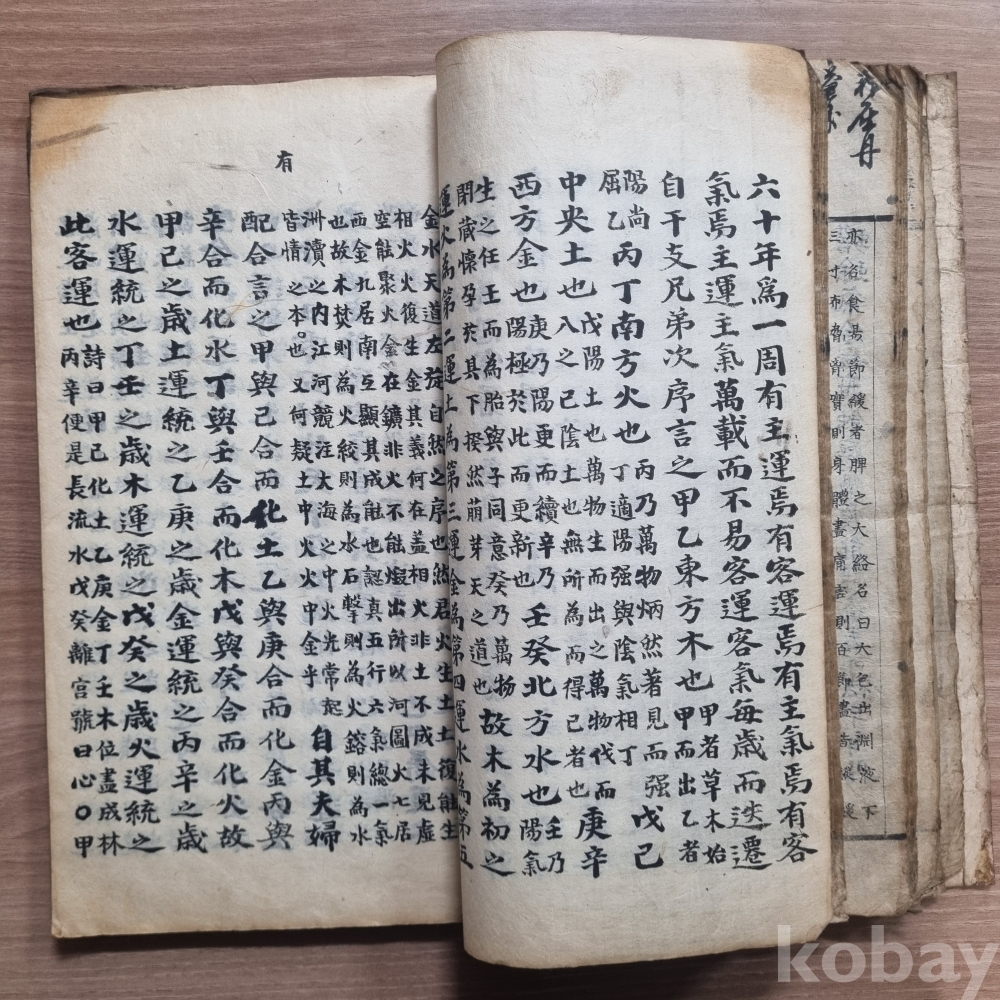 亦名食昜節緩者脾之大絡名曰大包出淵液下
三寸布脅
六十年爲一周有主運焉有客運焉有主氣焉有客
氣焉主運主氣萬載而不易客運客氣每歲而迭遷
自干支兄弟次序言之甲乙東方木也
甲者草木始
甲而出乙者
陽尚
屈乙
丙丁南方火也
丙乃萬物炳然著見而强
丁適陽强與陰氣相丁
戊己
中央土也
戊陽土也萬物生而出之萬物伐而
八之己陰土也無所為而得己者也
庚辛
西方金也
庚乃陽更而續辛乃
陽極於此而更新也
壬癸北方水也
壬乃
陽氣
生之任壬而為胎與子同意癸乃萬物
閉歲懷孕於其下揆然萌芽天之道也
故木為初之
運火為第二運土為第三運金為第四運水為第五
有
金水天道左旋自然之序也然君火生土土復能生
相火火復生金其義何在盖相火非土不成未見虛
空能聚火金在鑛非火不能煅出所以河圖火七居
西金九居南互顯其成能也認真五行六氣總一氣
也故木焚則為火絞則為水石擊則為火鎔則為水
洲瀆之内江河競注大海之中火光常起
皆情之本。也又何疑土中火火中金乎
自其夫婦
配合言之甲與己合而化土乙與庚合而化金丙與
辛合而化水丁與壬合而化木戊與癸合而化火故
甲己之歲土運統之乙庚之歲金運統之丙辛之歲
水運統之丁壬之歲木運統之戊癸之歲火運統之
此客運也
詩曰甲己化土乙庚金丁壬木位盡成林
丙辛便是長流水戊癸離宮號曰心〇甲
kobay